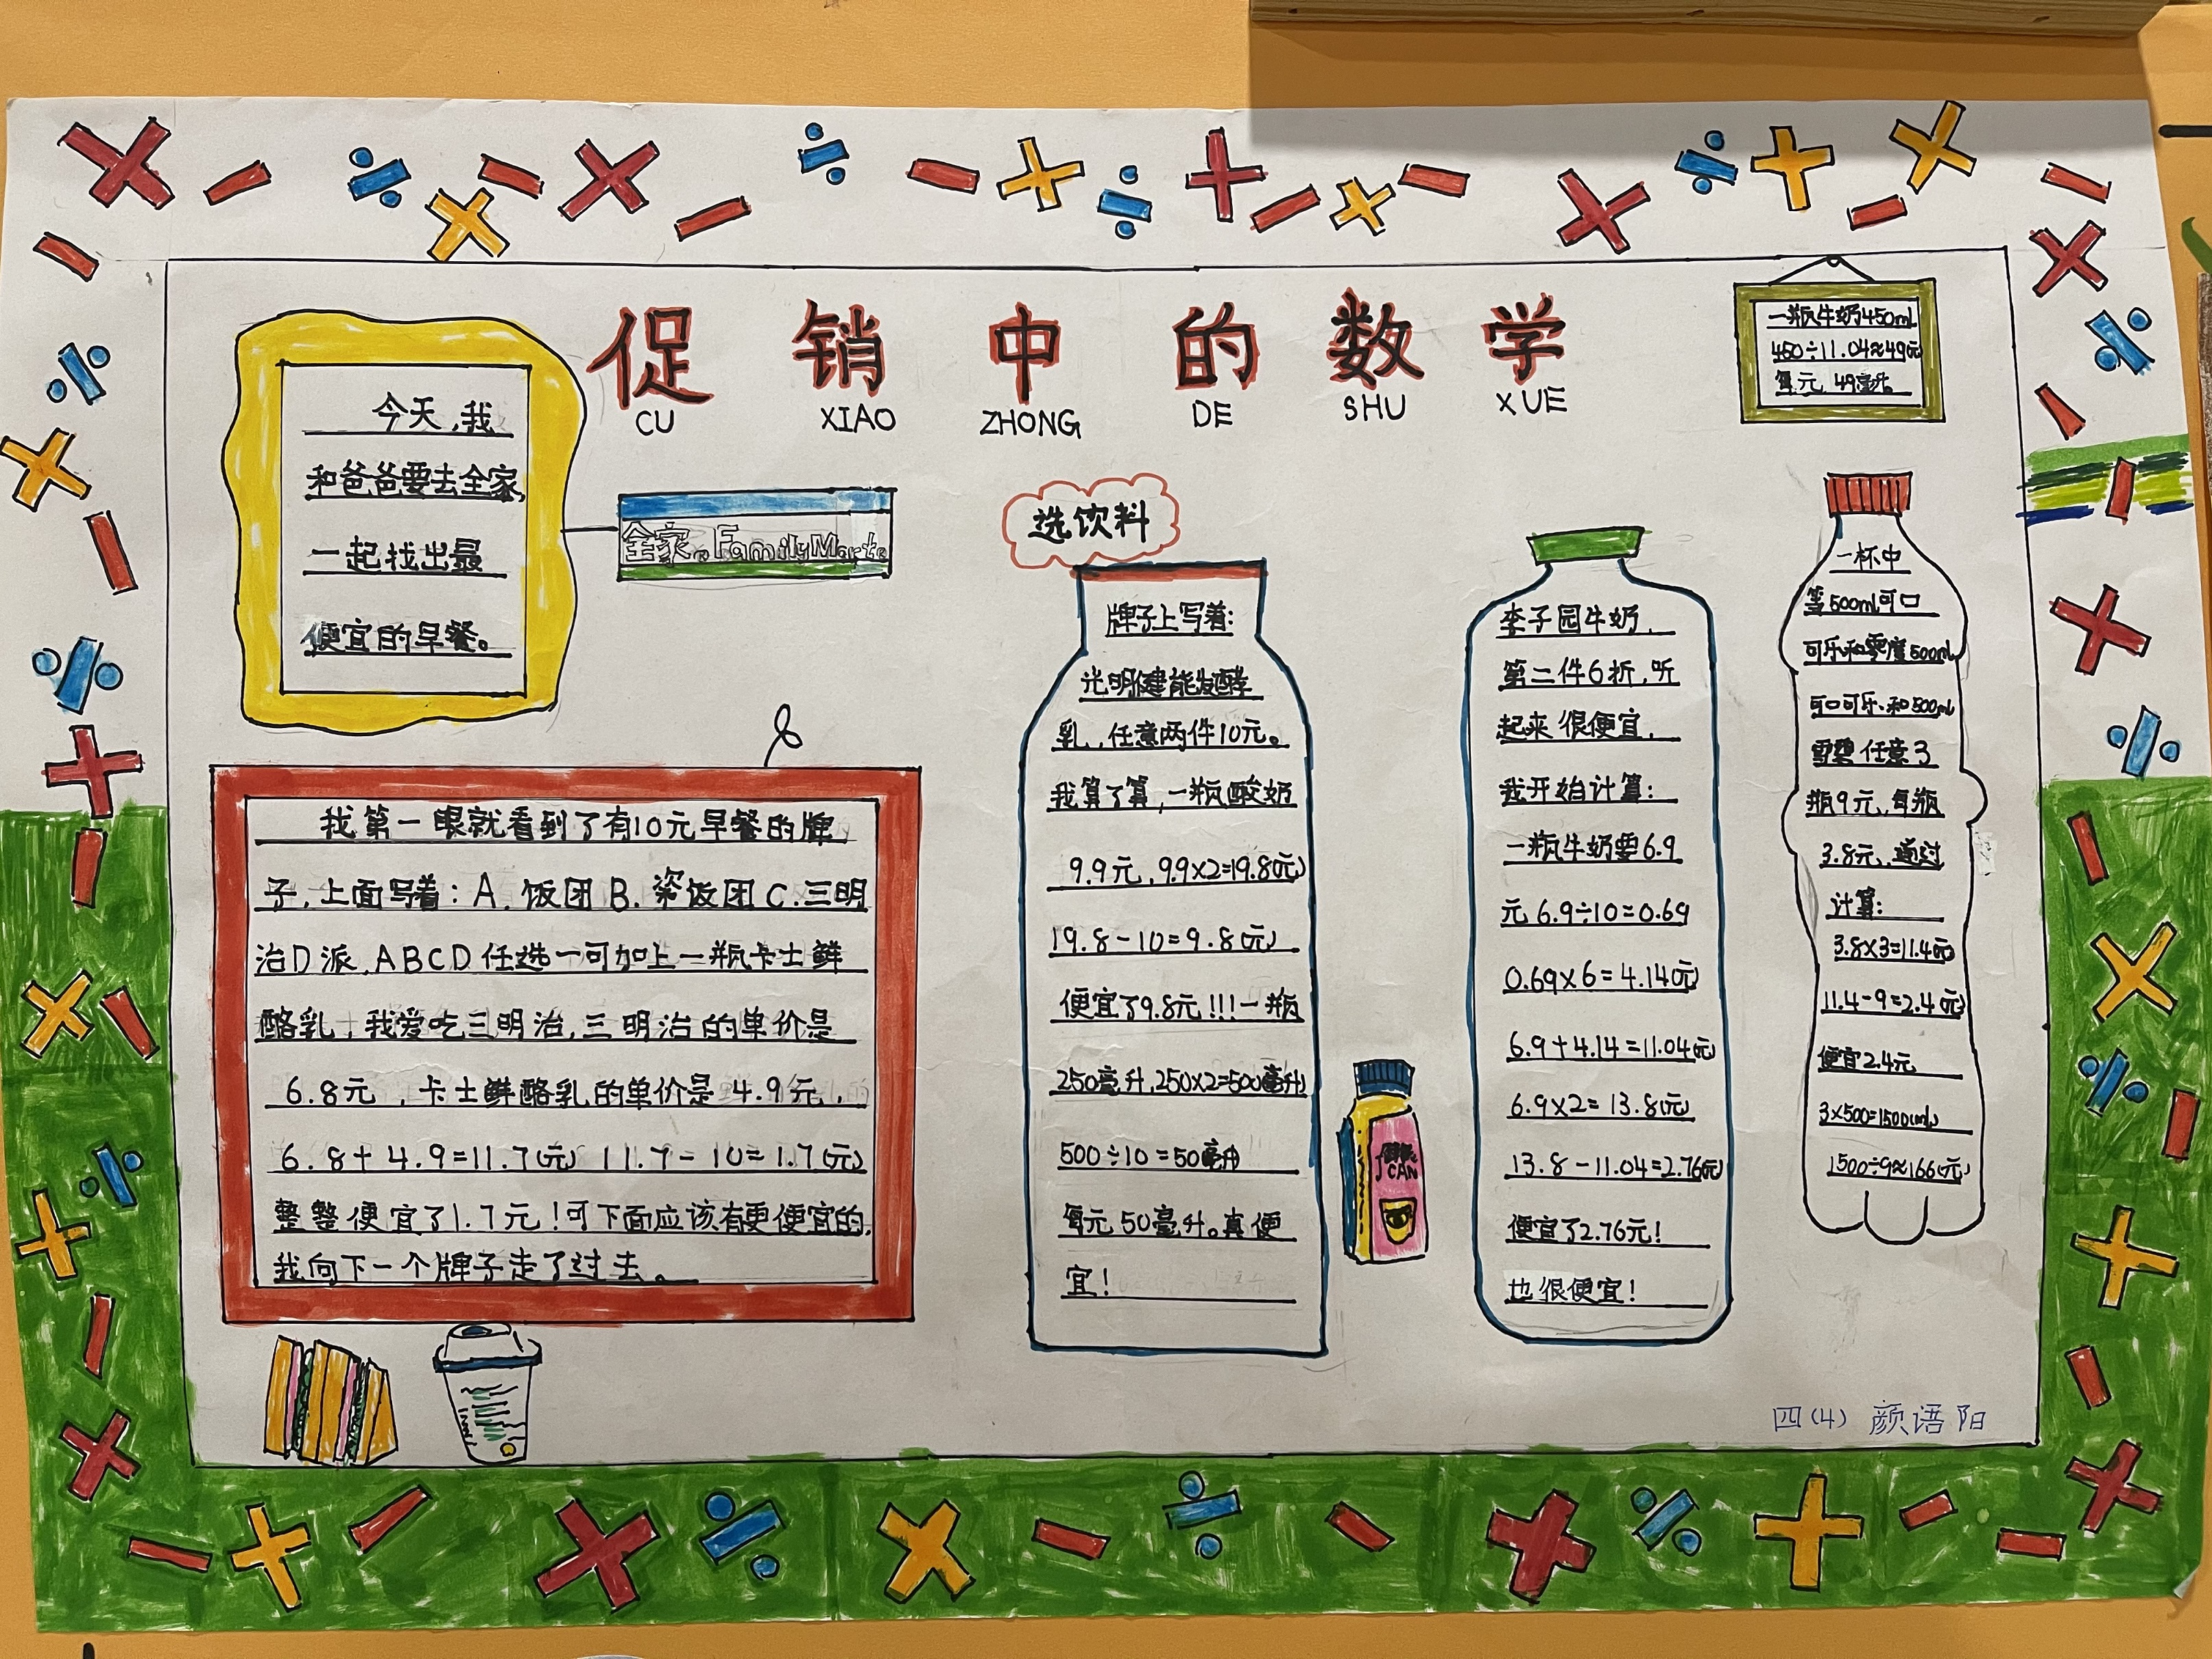 促销中的数学
CU XIAO ZHONG DE SHU XUE
今天,我
和爸爸要去全家,
一起找出最
便宜的早餐。
全家。FamilyMart
我第一眼就看到了有10元早餐的牌
子,上面写着:A.饭团B.粢饭团C.三明
治D派,ABCD任选一可加上一瓶卡士鲜
酪乳,我爱吃三明治,三明治的单价是
6.8元,卡士鲜酪乳的单价是4.9元,
6.8+4.9=11.7(元) 11.7-10=1.7(元)
整整便宜了1.7元!可下面应该有更便宜的,
我向下一个牌子走了过去。
选饮料
牌子上写着:
光明健能发酵
乳,任意两件10元。
我算了算,一瓶酸奶
9.9元,9.9×2=19.8(元)
19.8-10=9.8(元)
便宜了9.8元!!!一瓶
250毫升,250×2=500(毫升)
500÷10=50毫升
每元50毫升。真便
宜!
CAN
李子园牛奶,
第二件6折,听
起来很便宜,
我开始计算:
一瓶牛奶要6.9
元 6.9÷10=0.69
0.69×6=4.14(元)
6.9+4.14=11.04(元)
6.9×2=13.8(元)
13.8-11.04=2.76(元)
便宜了2.76元!
也很便宜!
一瓶牛奶450mL
450÷11.04≈49(元)
每元 49毫升。
一杯中
等500ml可口
可乐和零度500mL
可口可乐、和500mL
雪碧任意3
瓶9元,每瓶
3.8元,通过
计算:
3.8×3=11.4(元)
11.4-9=2.4(元)
便宜2.4元
3×500=1500(mL)
1500÷9≈166(元)
四(4) 颜语阳